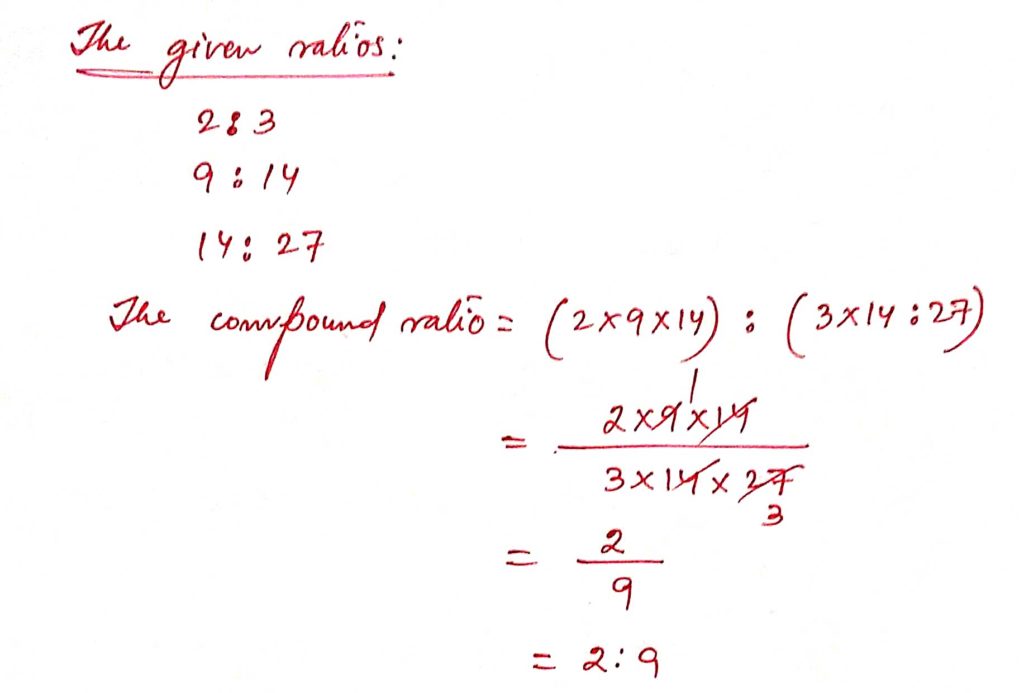 The given ratios:
2:3
9:14
14:27
The compound ratio = (2×9×14) : (3×14:27)
1
= 2×9×14
3×14×27
3
= 2
9
= 2:9